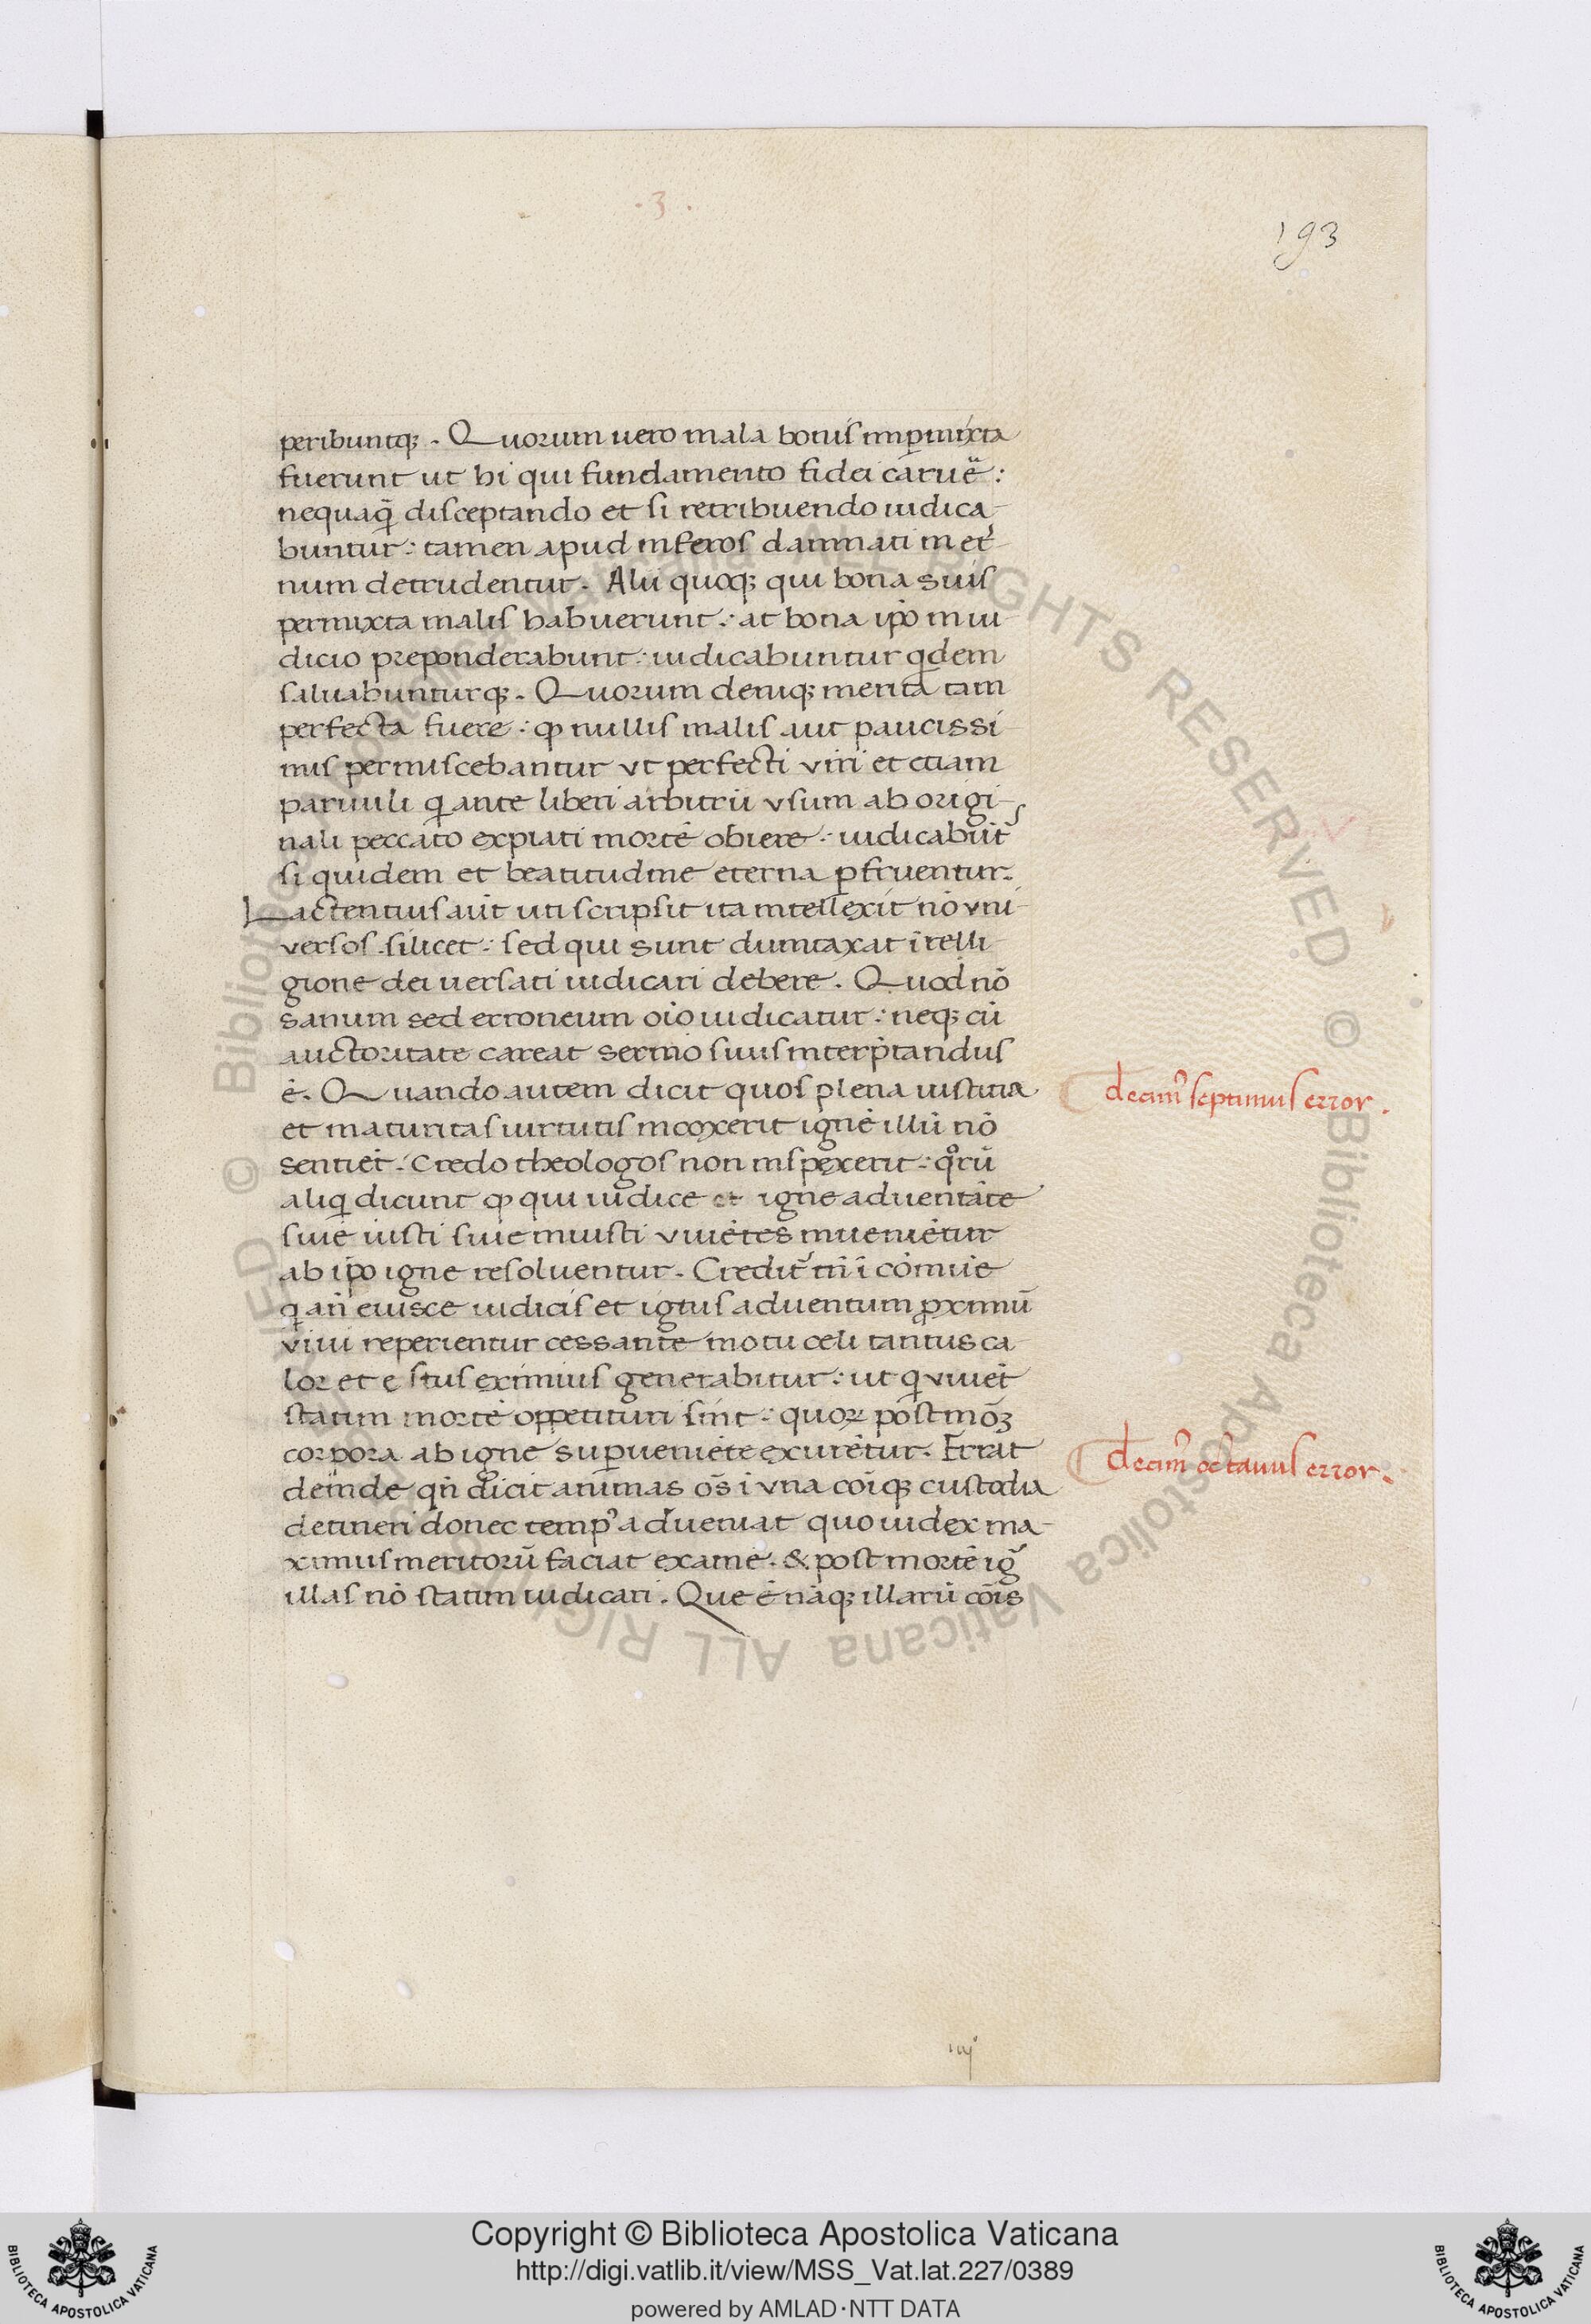 . 3 .
193
peribuntqꝫ . Quorum uero mala bonis imp̲mixta
fuerunt ut hi qui fundamento fidei caruē̈ :
nequaq̄ disceptando et si retribuendo iudica-
buntur : tamen apud inferos damnati in et̄-
num detrudentur . Alii quoqꝫ qui bona suis
permixta malis habuerunt : at bona ip̄o in iu-
dicio preponderabunt : iudicabuntur qdem
saluabunturqꝫ . Quorum deniqꝫ merita tam
perfecta fuere : ꝙ nullis malis aut paucissi-
mis permiscebantur vt perfecti viri et etiam
paruuli q ante liberi arbitrii vsum ab origi-
nali peccato expiati mortē obiere : iudicabūt̄
si quidem et beatitudine eterna ꝑfruentur .
Lactentius aūt uti scripsit ita intellexit nō vni-
versos . silicet : sed qui sunt dumtaxat ī relli-
gione dei uersati iudicari debere . Quod nō
sanum sed erroneum oīo iudicatur : neqꝫ cū
auctoritate careat sermo suus interp̄tandus
ē . Quando autem dicit quos plena iustitia
et maturitas uirtutis incoxerit ignē illū nō
sentiet . Credo theologos non inspexerit : qͦrū
aliq dicunt ꝙ qui iudice et igne aduentāte
siue iusti siue iniusti viuētes inueniētur
ab ip̄o igne resoluentur . Credit̄ tn̄ ī cōmūe
q añ eiusce iudicis et ignis aduentum ꝓximū
viui reperientur cessante motu celi tantus ca-
lor et estus eximius generabitur : ut q viuet
statim mortē oppetituri sint : quoꝝ postmōꝫ
corpora ab igne suꝑueniēte exurētur . Errat
deinde qn̄ dicit animas oēs ī vna cōiqꝫ custodia
detineri donec tempꝰ adueniat quo iudex ma-
ximus meritorū faciat examē . & post mortē ig̃
illas nō statim iudicari . Que ē nāqꝫ illarū cōis
decimꝰ septimus error .
decimꝰ octauus error .
iiij
Copyright © Biblioteca Apostolica Vaticana
http://digi.vatlib.it/view/MSS_Vat.lat.227/0389
powered by AMLAD·NTT DATA
BIBLIOTECA APOSTOLICA VATICANA
BIBLIOTECA APOSTOLICA VATICANA
© Biblioteca Apostolica Vaticana ALL RIGHTS RESERVED © Biblioteca Apostolica Vaticana ALL RIGHTS RESERVED